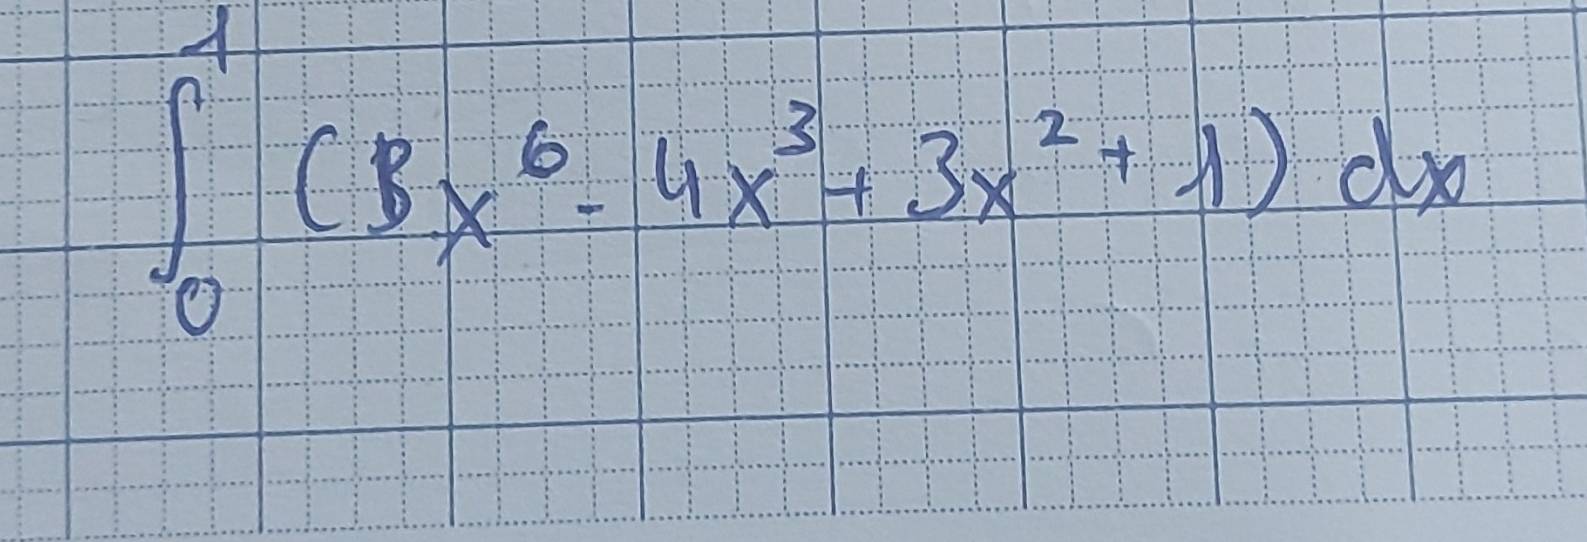 ∫₀¹ (8x⁶ - 4x³ + 3x² + 1) dx